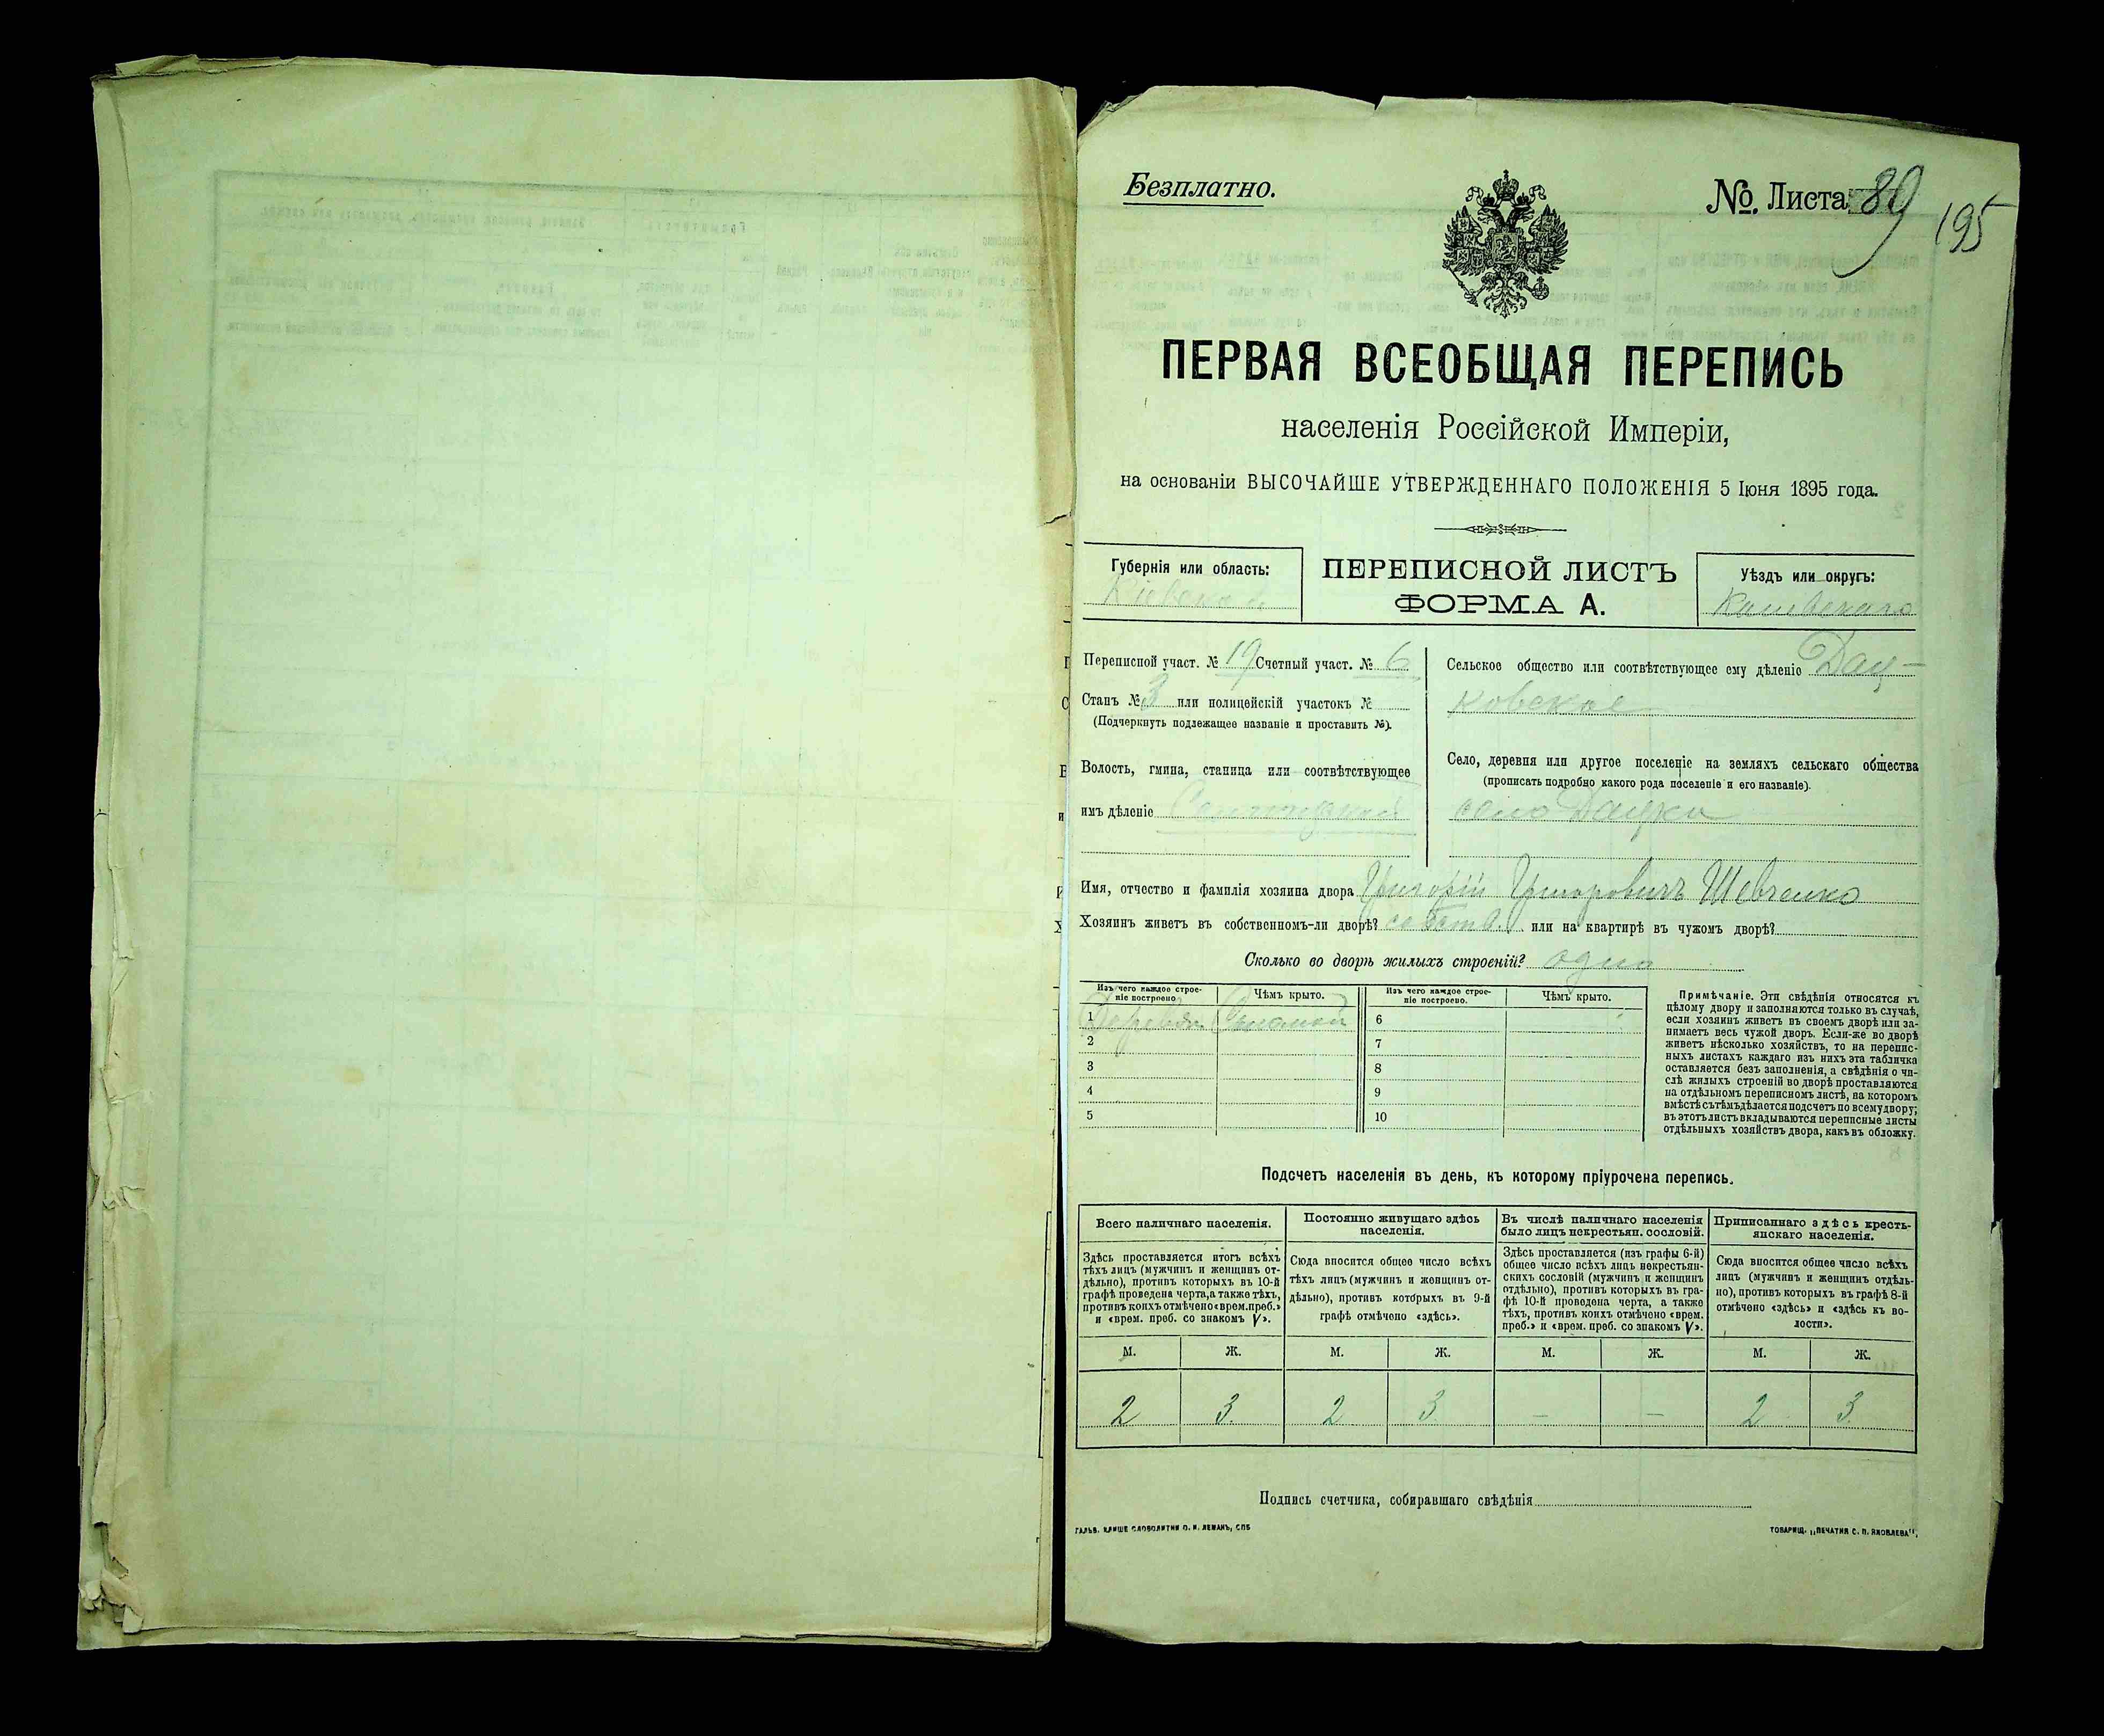 Безплатно.
№. Листа 89
195
ПЕРВАЯ ВСЕОБЩАЯ ПЕРЕПИСЬ
населенія Россійской Имперіи,
на основаніи ВЫСОЧАЙШЕ УТВЕРЖДЕННАГО ПОЛОЖЕНІЯ 5 Іюня 1895 года.
Губернія или область:
Кіевская
ПЕРЕПИСНОЙ ЛИСТЪ
ФОРМА А.
Уѣздъ или округъ:
Каневскаго
Переписной участ. № 19 Счетный участ. № 6
Станъ № 3 или полицейскій участокъ №
(Подчеркнуть подлежащее названіе и проставить №).
Волость, гмина, станица или соотвѣтствующее
имъ дѣленіе
Сельское общество или соотвѣтствующее ему дѣленіе Дац-
ковское
Село, деревня или другое поселеніе на земляхъ сельскаго общества
(прописать подробно какого рода поселеніе и его названіе).
село Дацки
Имя, отчество и фамилія хозяина двора Григорій Григоровичъ Шевченко
Хозяинъ живетъ въ собственномъ-ли дворѣ? собств. или на квартирѣ въ чужомъ дворѣ?
Сколько во дворѣ жилыхъ строеній? одно
Изъ чего каждое строе-
ніе построено.
Чѣмъ крыто.
Изъ чего каждое строе-
ніе построено.
Чѣмъ крыто.
1 Деревян. Соломой
2
3
4
5
6
7
8
9
10
Примѣчаніе. Эти свѣдѣнія относятся къ
цѣлому двору и заполняются только въ случаѣ,
если хозяинъ живетъ въ своемъ дворѣ или за-
нимаетъ весь чужой дворъ. Если-же во дворѣ
живетъ нѣсколько хозяйствъ, то на перепис-
ныхъ листахъ каждаго изъ нихъ эта табличка
оставляется безъ заполненія, а свѣдѣнія о чи-
слѣ жилыхъ строеній во дворѣ проставляются
на отдѣльномъ переписномъ листѣ, на которомъ
вмѣстѣ съ тѣмъ дѣлается подсчетъ по всему двору;
въ этотъ листъ вкладываются переписные листы
отдѣльныхъ хозяйствъ двора, какъ въ обложку.
Подсчетъ населенія въ день, къ которому пріурочена перепись.
Всего наличнаго населенія.
Здѣсь проставляется итогъ всѣхъ
тѣхъ лицъ (мужчинъ и женщинъ от-
дѣльно), противъ которыхъ въ 10-й
графѣ проведена черта, а также тѣхъ,
противъ коихъ отмѣчено «врем. преб.»
и «врем. преб. со знакомъ V».
Постоянно живущаго здѣсь
населенія.
Сюда вносится общее число всѣхъ
тѣхъ лицъ (мужчинъ и женщинъ от-
дѣльно), противъ которыхъ въ 9-й
графѣ отмѣчено «здѣсь».
Въ числѣ наличнаго населенія
было лицъ некрестьян. сословій.
Здѣсь проставляется (изъ графы 6-й)
общее число всѣхъ лицъ некрестьян-
скихъ сословій (мужчинъ и женщинъ
отдѣльно), противъ которыхъ въ гра-
фѣ 10-й проведена черта, а также
тѣхъ, противъ коихъ отмѣчено «врем.
преб.» и «врем. преб. со знакомъ V».
Приписаннаго здѣсь кресть-
янскаго населенія.
Сюда вносится общее число всѣхъ
лицъ (мужчинъ и женщинъ отдѣль-
но), противъ которыхъ въ графѣ 8-й
отмѣчено «здѣсь» и «здѣсь къ во-
лости».
М. Ж. М. Ж. М. Ж. М. Ж.
2 3 2 3 — — 2 3
Подпись счетчика, собиравшаго свѣдѣнія
ГАЛЬВ. КЛИШЕ СЛОВОЛИТНИ О. И. ЛЕМАНЪ, СПБ
ТОВАРИЩ. „ПЕЧАТНЯ С. П. ЯКОВЛЕВА".